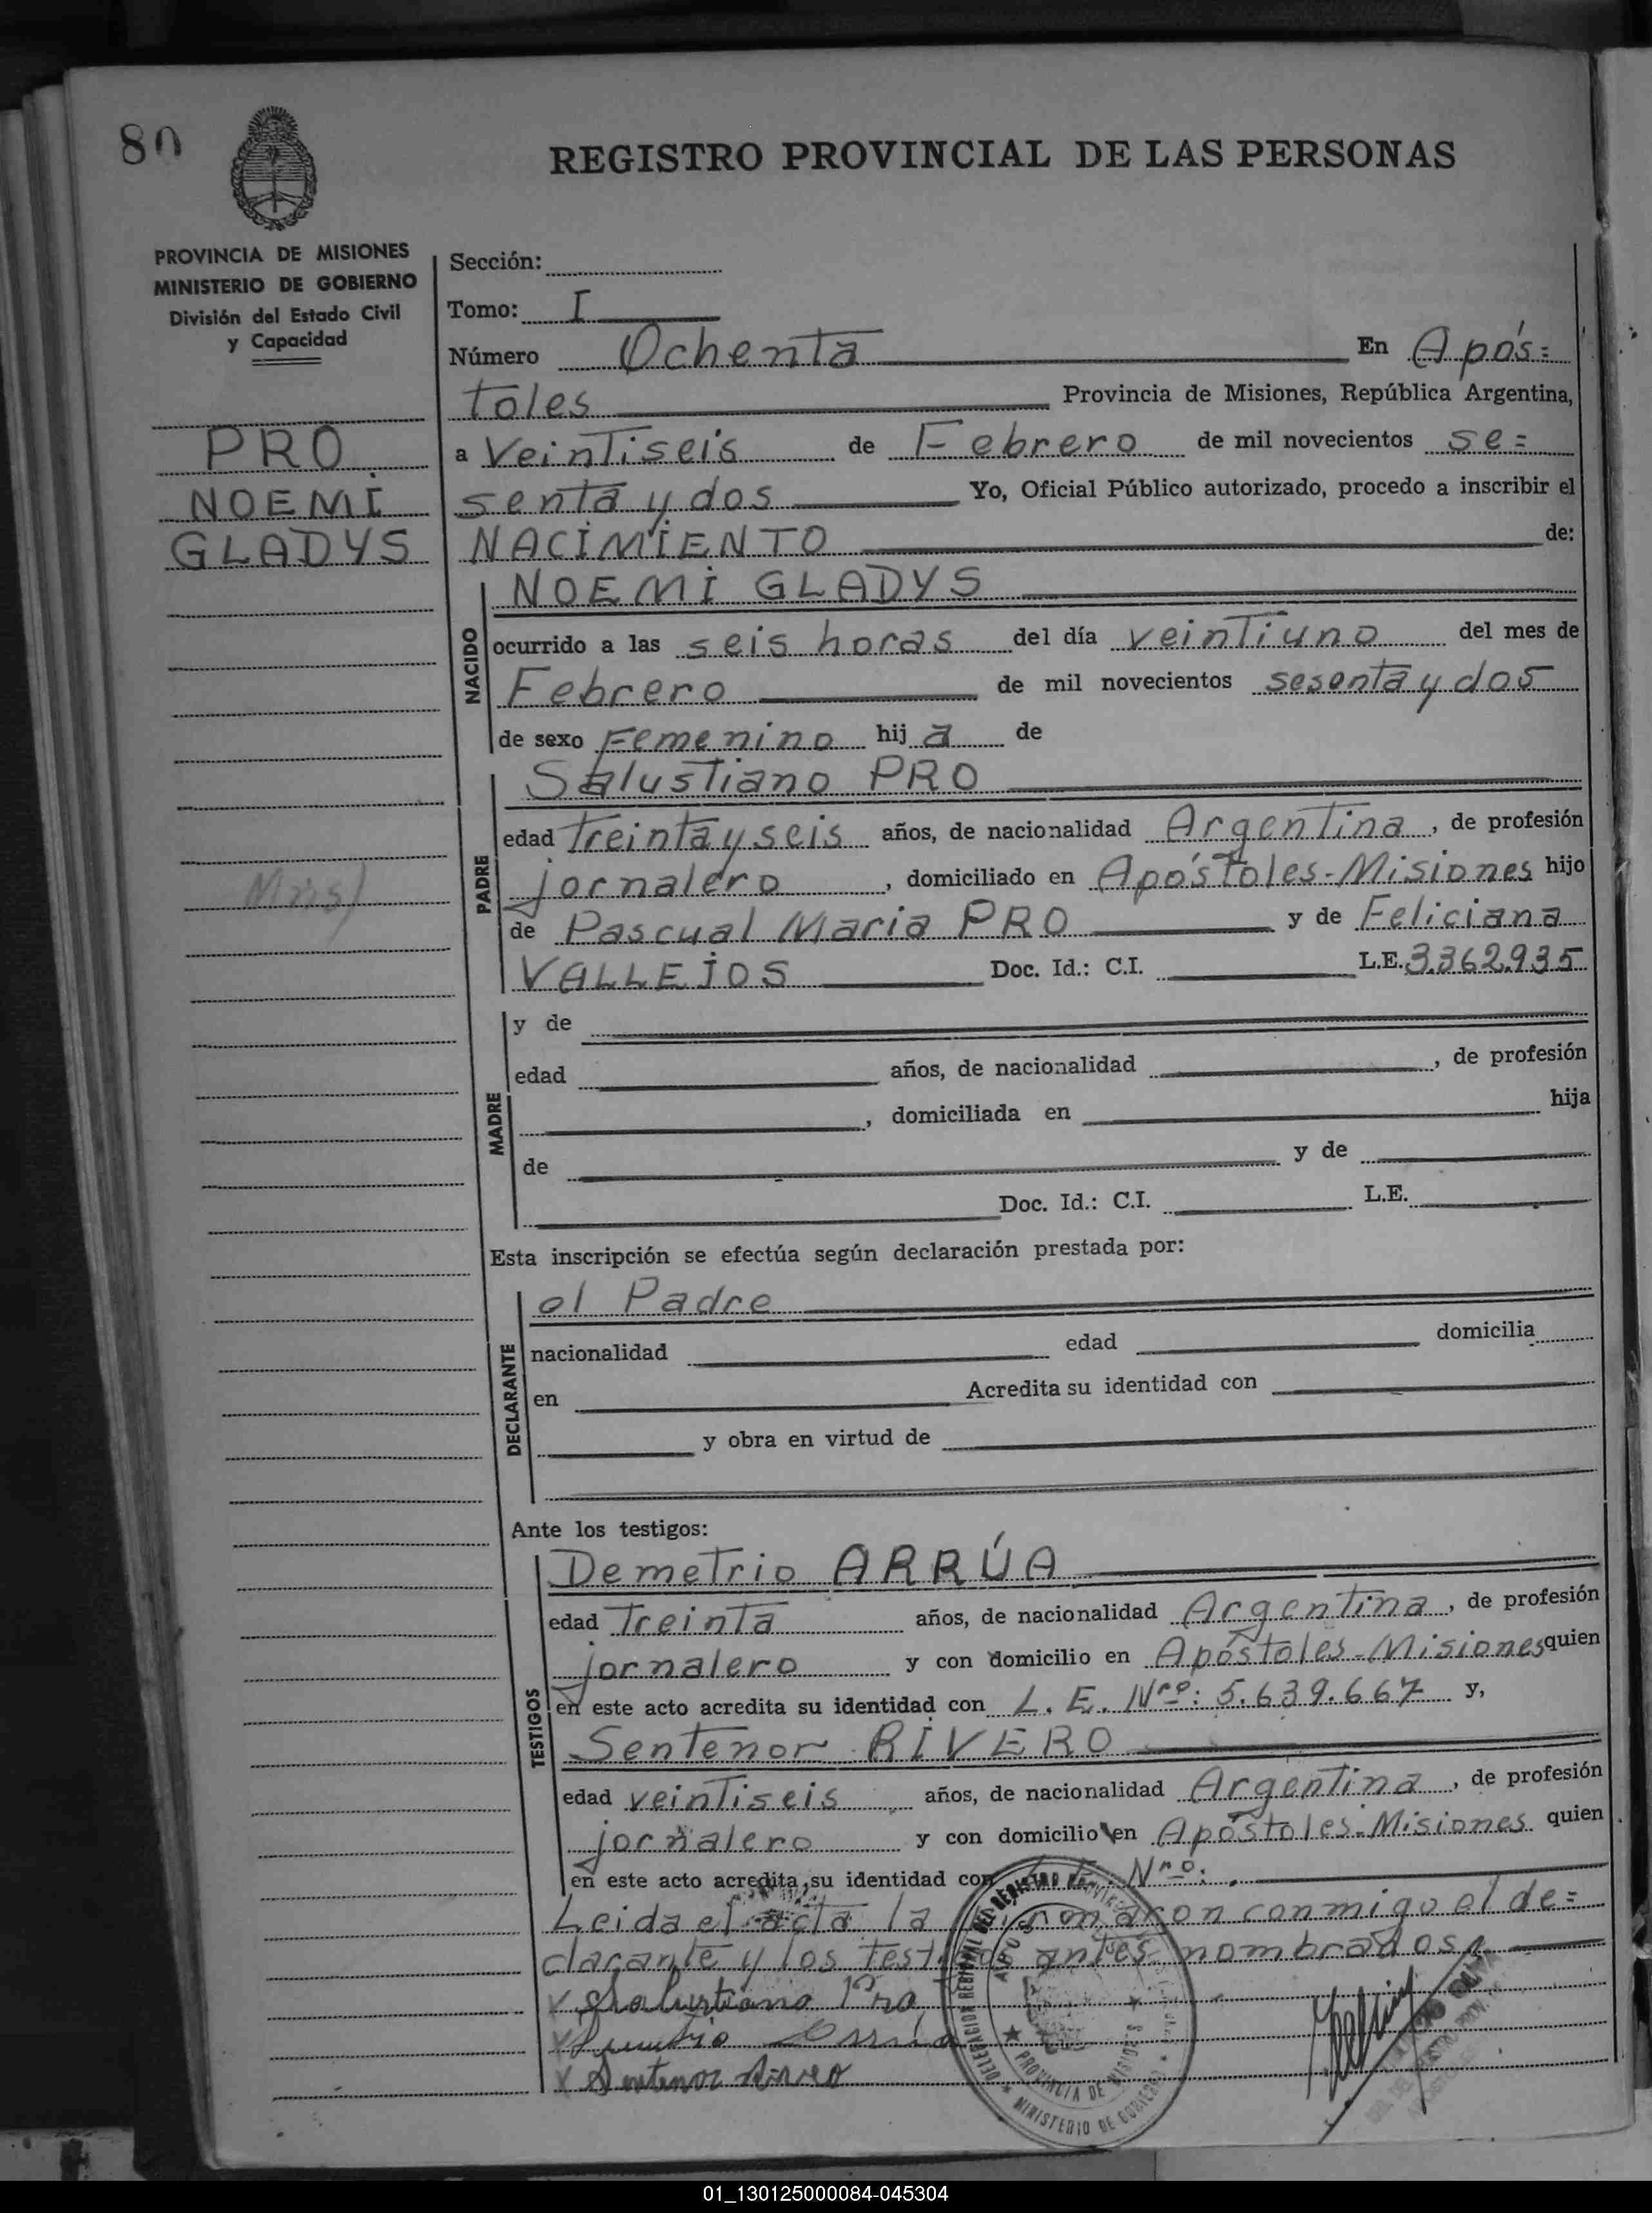 80
REGISTRO PROVINCIAL DE LAS PERSONAS
PROVINCIA DE MISIONES
MINISTERIO DE GOBIERNO
División del Estado Civil
y Capacidad
PRO
NOEMÍ
GLADYS
Sección:
Tomo: I
Número Ochenta En Após=
toles Provincia de Misiones, República Argentina,
a Veintiseis de Febrero de mil novecientos se=
senta y dos Yo, Oficial Público autorizado, procedo a inscribir el
NACIMIENTO de:
NACIDO
NOEMÍ GLADYS
ocurrido a las seis horas del día veintiuno del mes de
Febrero de mil novecientos sesenta y dos
de sexo Femenino hij a de
PADRE
Salustiano PRO
edad treinta y seis años, de nacionalidad Argentina, de profesión
jornalero, domiciliado en Apóstoles-Misiones hijo
de Pascual Maria PRO y de Feliciana
VALLEJOS Doc. Id.: C.I. L.E. 3.362.935
MADRE
y de
edad años, de nacionalidad , de profesión
, domiciliada en hija
de y de
Doc. Id.: C.I. L.E.
Esta inscripción se efectúa según declaración prestada por:
DECLARANTE
el Padre
nacionalidad edad domicilia
en Acredita su identidad con
y obra en virtud de
Ante los testigos:
TESTIGOS
Demetrio ARRÚA
edad Treinta años, de nacionalidad Argentina, de profesión
jornalero y con domicilio en Apóstoles-Misiones quien
en este acto acredita su identidad con L. E. Nro: 5.639.667 y,
Sentenor RIVERO
edad veintiseis años, de nacionalidad Argentina, de profesión
jornalero y con domicilio en Apóstoles-Misiones quien
en este acto acredita su identidad con Nro:
Leida el acta la conmigo el de=
clarante y los testigos antes nombrados
x Salustiano Pro
x Arrúa
x Sentenor Rivero
DELEGACION REGIONAL DEL REGISTRO
PROVINCIA DE MISIONES
MINISTERIO DE GOBIERNO
01_130125000084-045304